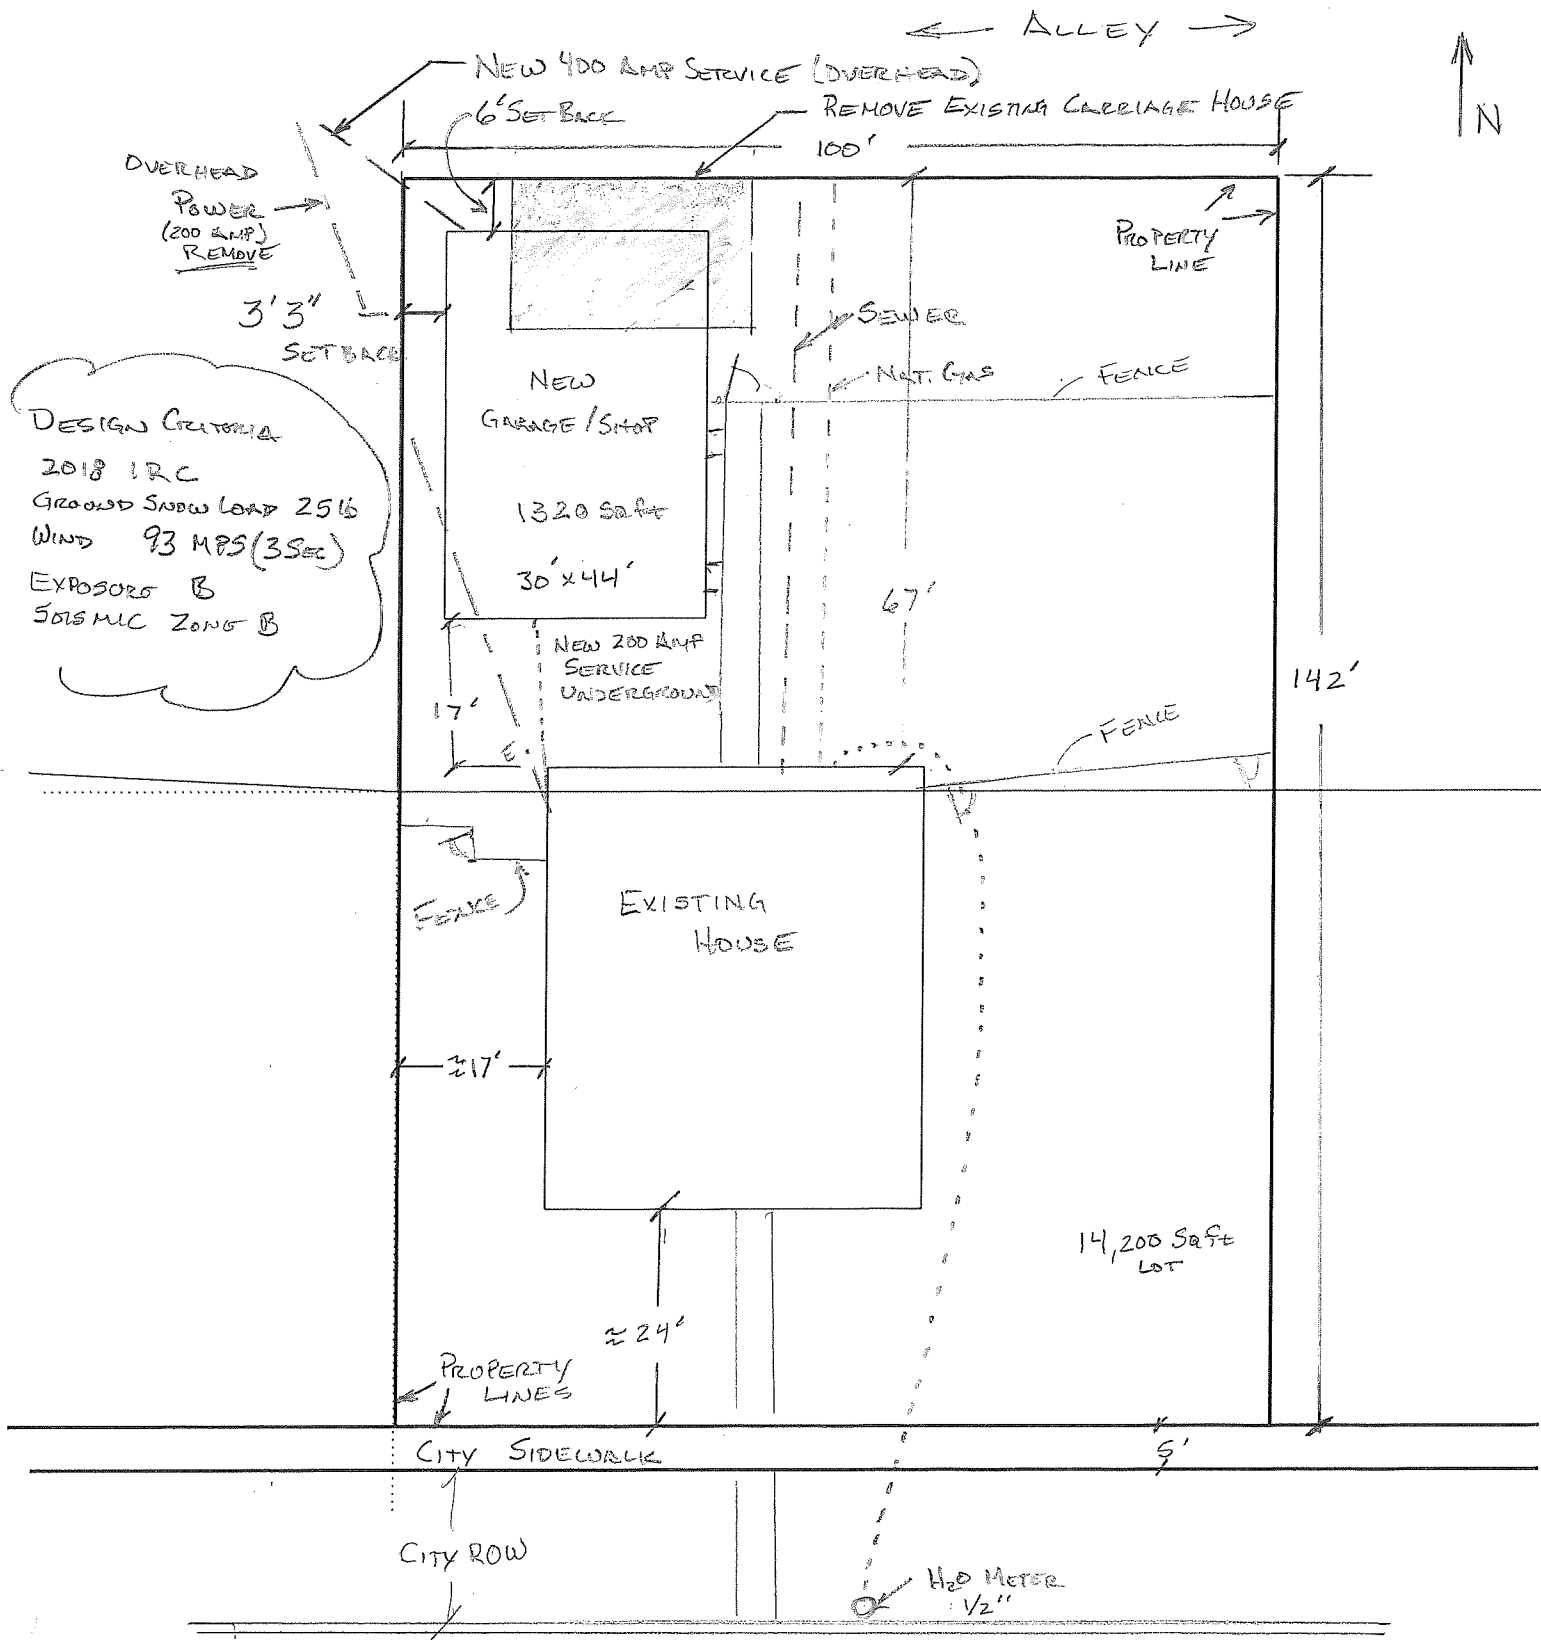 ALLEY
NEW 400 AMP SERVICE (OVERHEAD)
6' SETBACK
REMOVE EXISTING CARRIAGE HOUSE
N
100'
OVERHEAD
POWER
(200 AMP)
REMOVE
PROPERTY
LINE
3'3"
SETBACK
SEWER
NEW
GARAGE/SHOP
NAT. GAS
FENCE
DESIGN CRITERIA
2018 IRC
GROUND SNOW LOAD 25lb
WIND 93 MPS (3 SEC)
EXPOSURE B
SEISMIC ZONE B
1320 SQ ft
30' x 44'
67'
NEW 200 AMP
SERVICE
UNDERGROUND
142'
17'
E.
FENCE
FENCE
EXISTING
HOUSE
≈17'
14,200 SQ ft
LOT
≈24'
PROPERTY
LINES
CITY SIDEWALK
5'
CITY ROW
H2O METER
1/2"